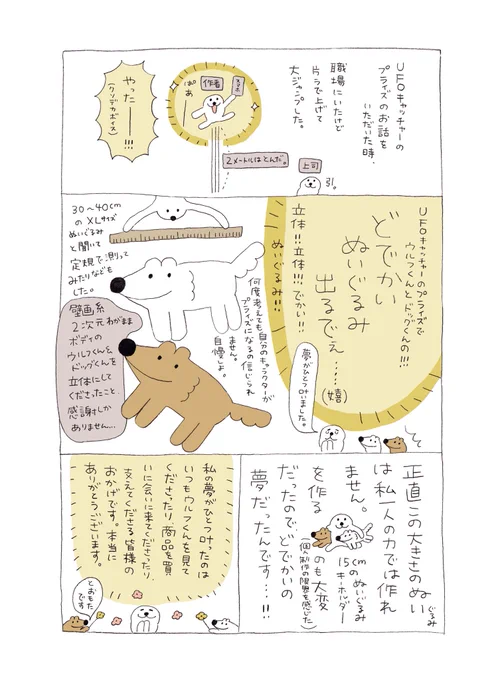 UFOキャッチャーの
プライズのお話を
いただいた時、
職場にいたけど
片ラで上げて
大ジャンプした。
作者
はぁ
あ
2メートルはとんだ。
上司
引。
やったー——!!!
(クソデカボイス)
UFOキャッチャーのプライズで
ウルフくんとドッグくんの!!!
どでかい
ぬいぐるみ
出るでぇ……(嬉)
立体!!立体!!でかい!!
ぬいぐるみ!!!
夢がひとつ叶いました。
30〜40cm
のXLサイズ
ぬいぐるみ
と聞いて
定規で測って
みたりなども
した。
何度考えても自分のキャラクターが
プライズになるの信じられ
ません。
自慢しよ。
壁画系
2次元わがまま
ボディの
ウルフくんと
ドッグくんを
立体にして
くださったこと、
感謝しか
ありません…
正直この大きさのぬいぐるみ
は私一人の力では作れ
ません。
15cmのぬいぐるみ
キーホルダー
を作るのも大変
(個人制作の限界を感じた)
だったので、どでかいの
夢だったんです…!!
私の夢がひとつ叶ったのは
いつもウルフくんを見て
くださったり、商品を買
いに会いに来てくださったり、
支えてくださる皆様の
おかげです。本当に
ありがとうございます。
とおもた
です